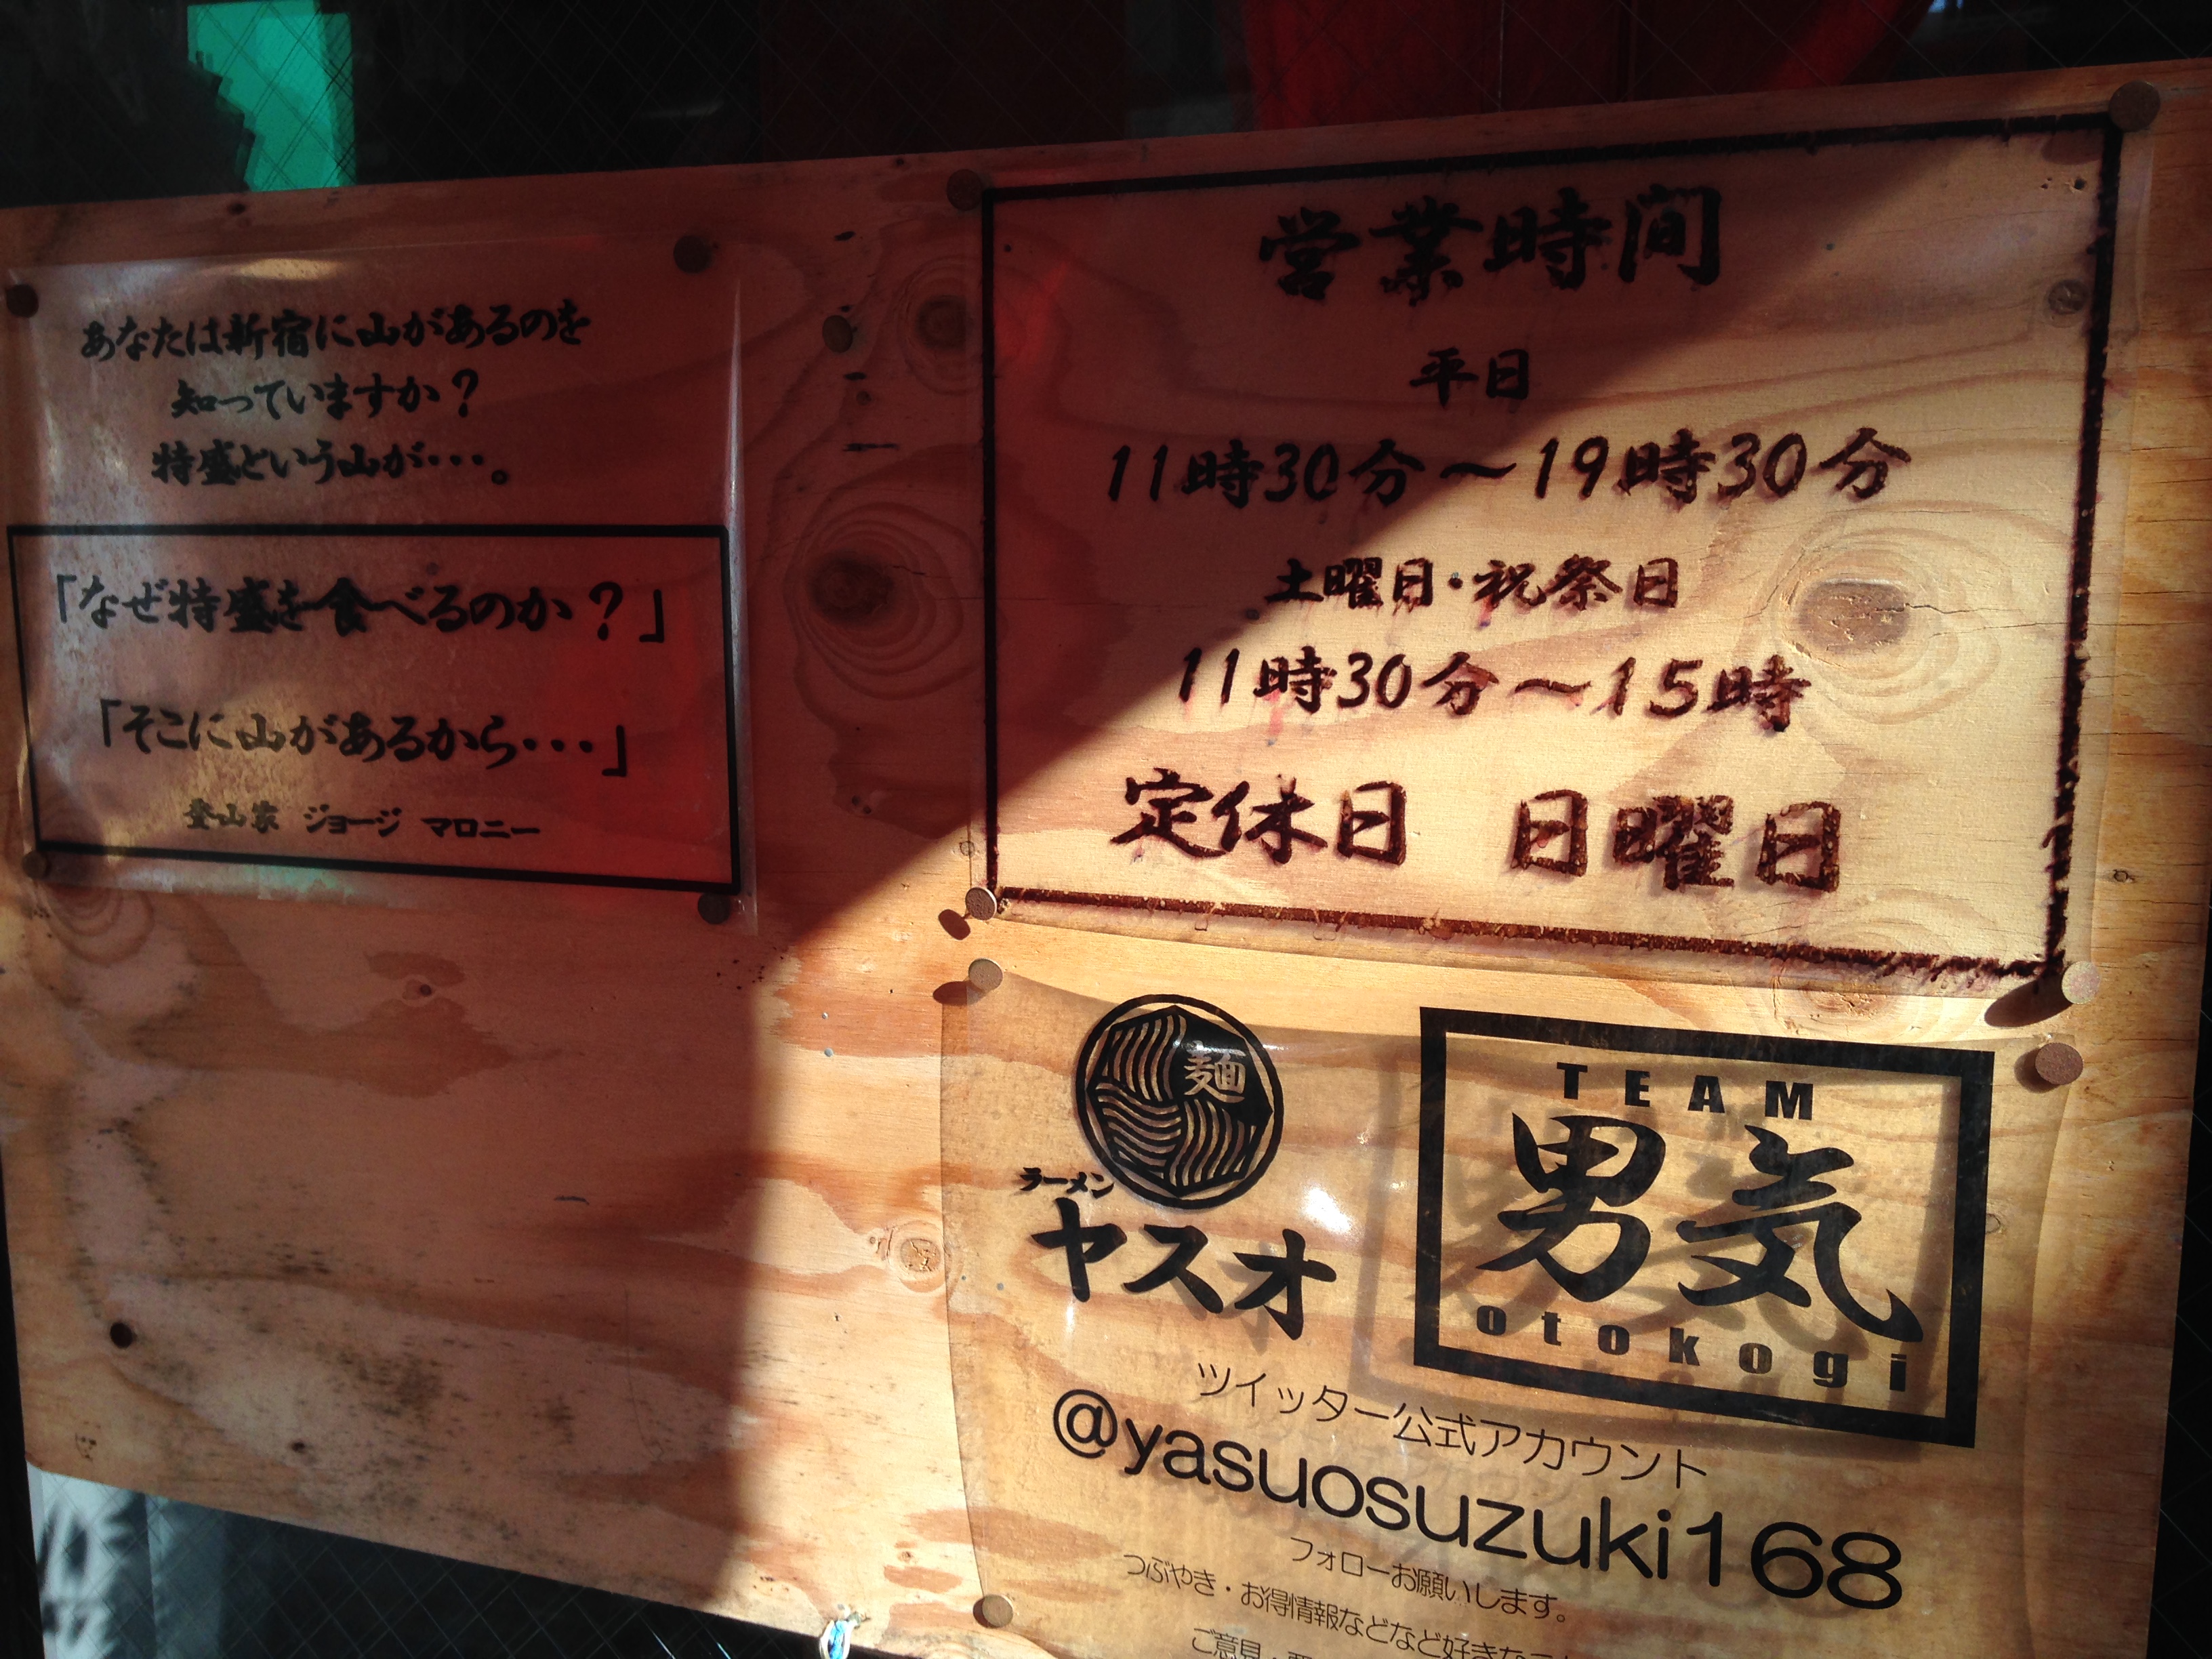 あなたは新宿に山があるのを
知っていますか？
特盛という山が・・・。
「なぜ特盛を食べるのか？」
「そこに山があるから・・・」
登山家 ジョージ マロニー
営業時間
平日
11時30分～19時30分
土曜日・祝祭日
11時30分～15時
定休日 日曜日
麺
ラーメン
ヤスオ
TEAM
男気
otokogi
ツイッター公式アカウント
@yasuosuzuki168
フォローお願いします。
つぶやき・お得情報などなど好きな
ご意見・